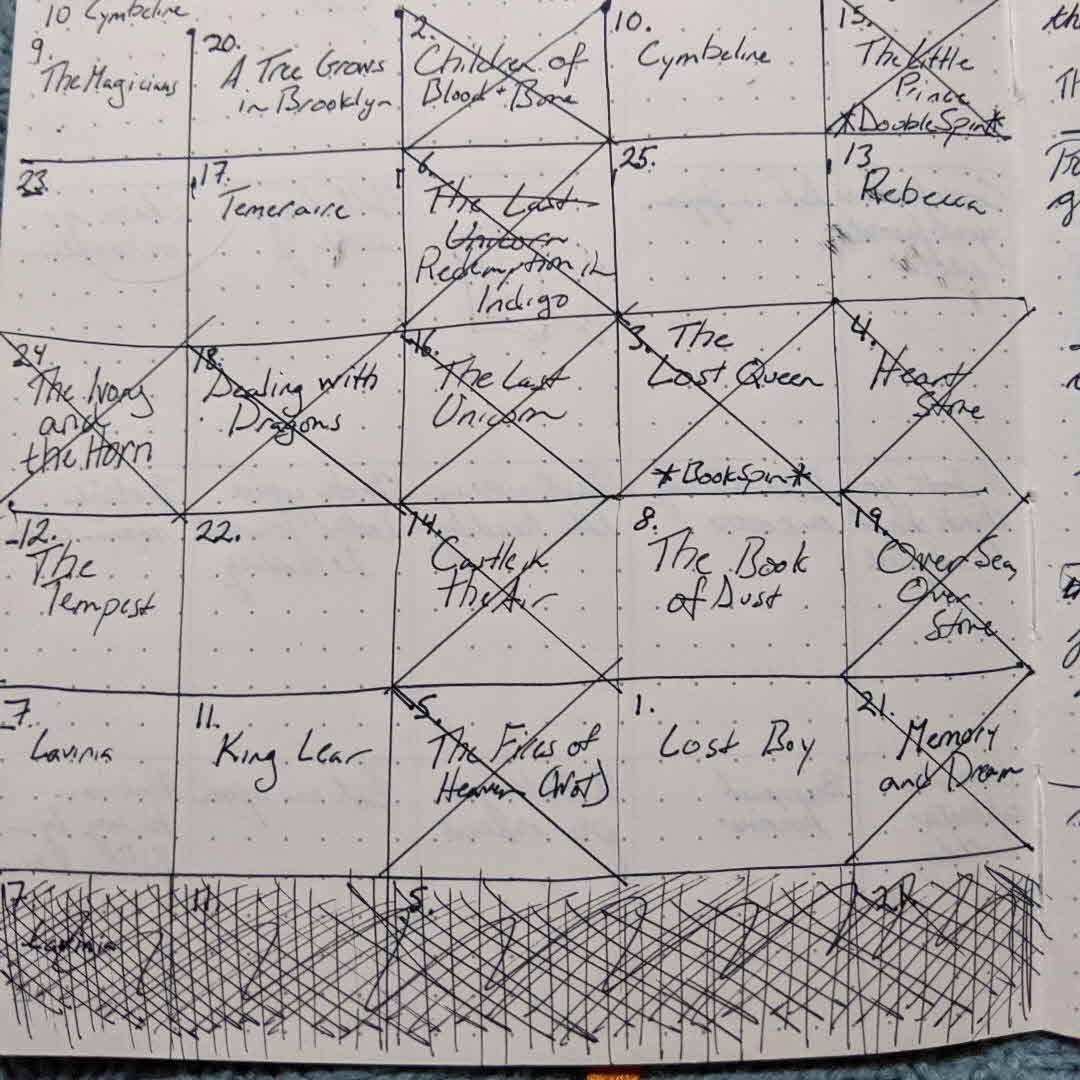 10 Cymbeline
9.
The Magicians
20.
A Tree Grows
in Brooklyn
2.
Children of
Blood + Bone
10.
Cymbeline
15.
The Little
Prince
*DoubleSpin*
23
17.
Temeraire
6.
The Last
Unicorn
Redemption in
Indigo
25.
13.
Rebecca
24
The Ivory
and
the Horn
18.
Dealing with
Dragons
16.
The Last
Unicorn
3.
The
Lost Queen
*BookSpin*
4.
Heart
Stone
12.
The
Tempest
22.
14.
Castle in
the Air
8.
The Book
of Dust
19.
Over Sea,
Over
Stone
7.
Lavinia
11.
King Lear
5.
The Fires of
Heaven (WoT)
1.
Lost Boy
21.
Memory
and Dream
17.
Lavinia
11.
5.